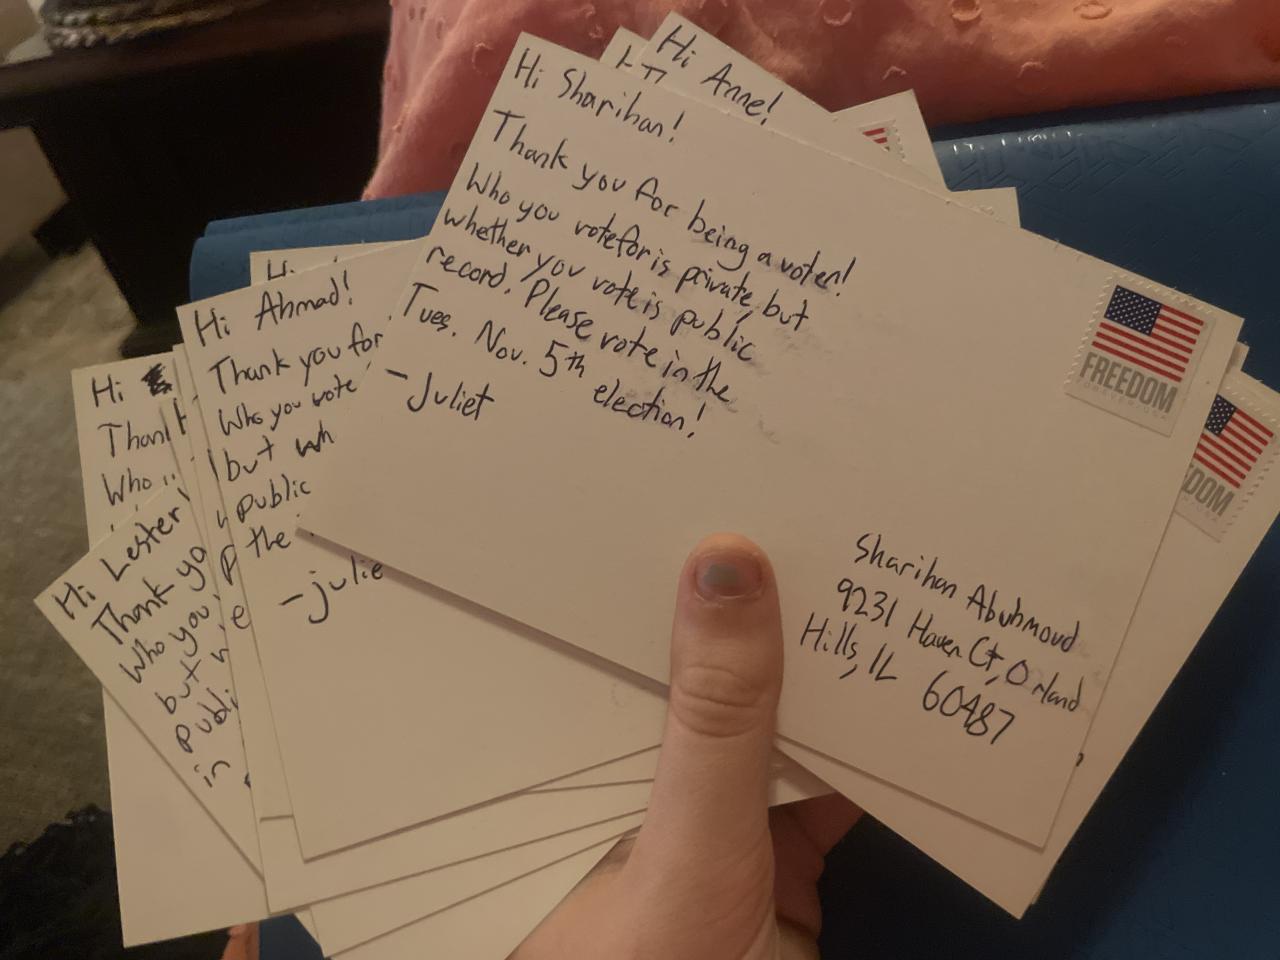 Hi Sharihan!
Thank you for being a voter!
Who you vote for is private, but
whether you vote is public
record. Please vote in the
Tues. Nov. 5th election!
-Juliet
FREEDOM
FOREVER/USA
Sharihan Abuhmoud
9231 Haven Ct, Orland
Hills, IL 60487
Hi Anne!
DOM
Hi Ahmad!
Thank you for
Who you vote
but wh
public
the
-julie
Hi
Hi
Thank
Who
Hi Lester!
Thank yo
Who you
but w
publi
in